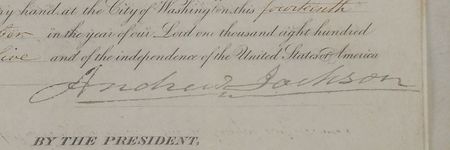 ry hand, at the City of Washington, this fourteenth
in the year of our Lord one thousand eight hundred
five and of the independence of the United States of America
Andrew Jackson
BY THE PRESIDENT,